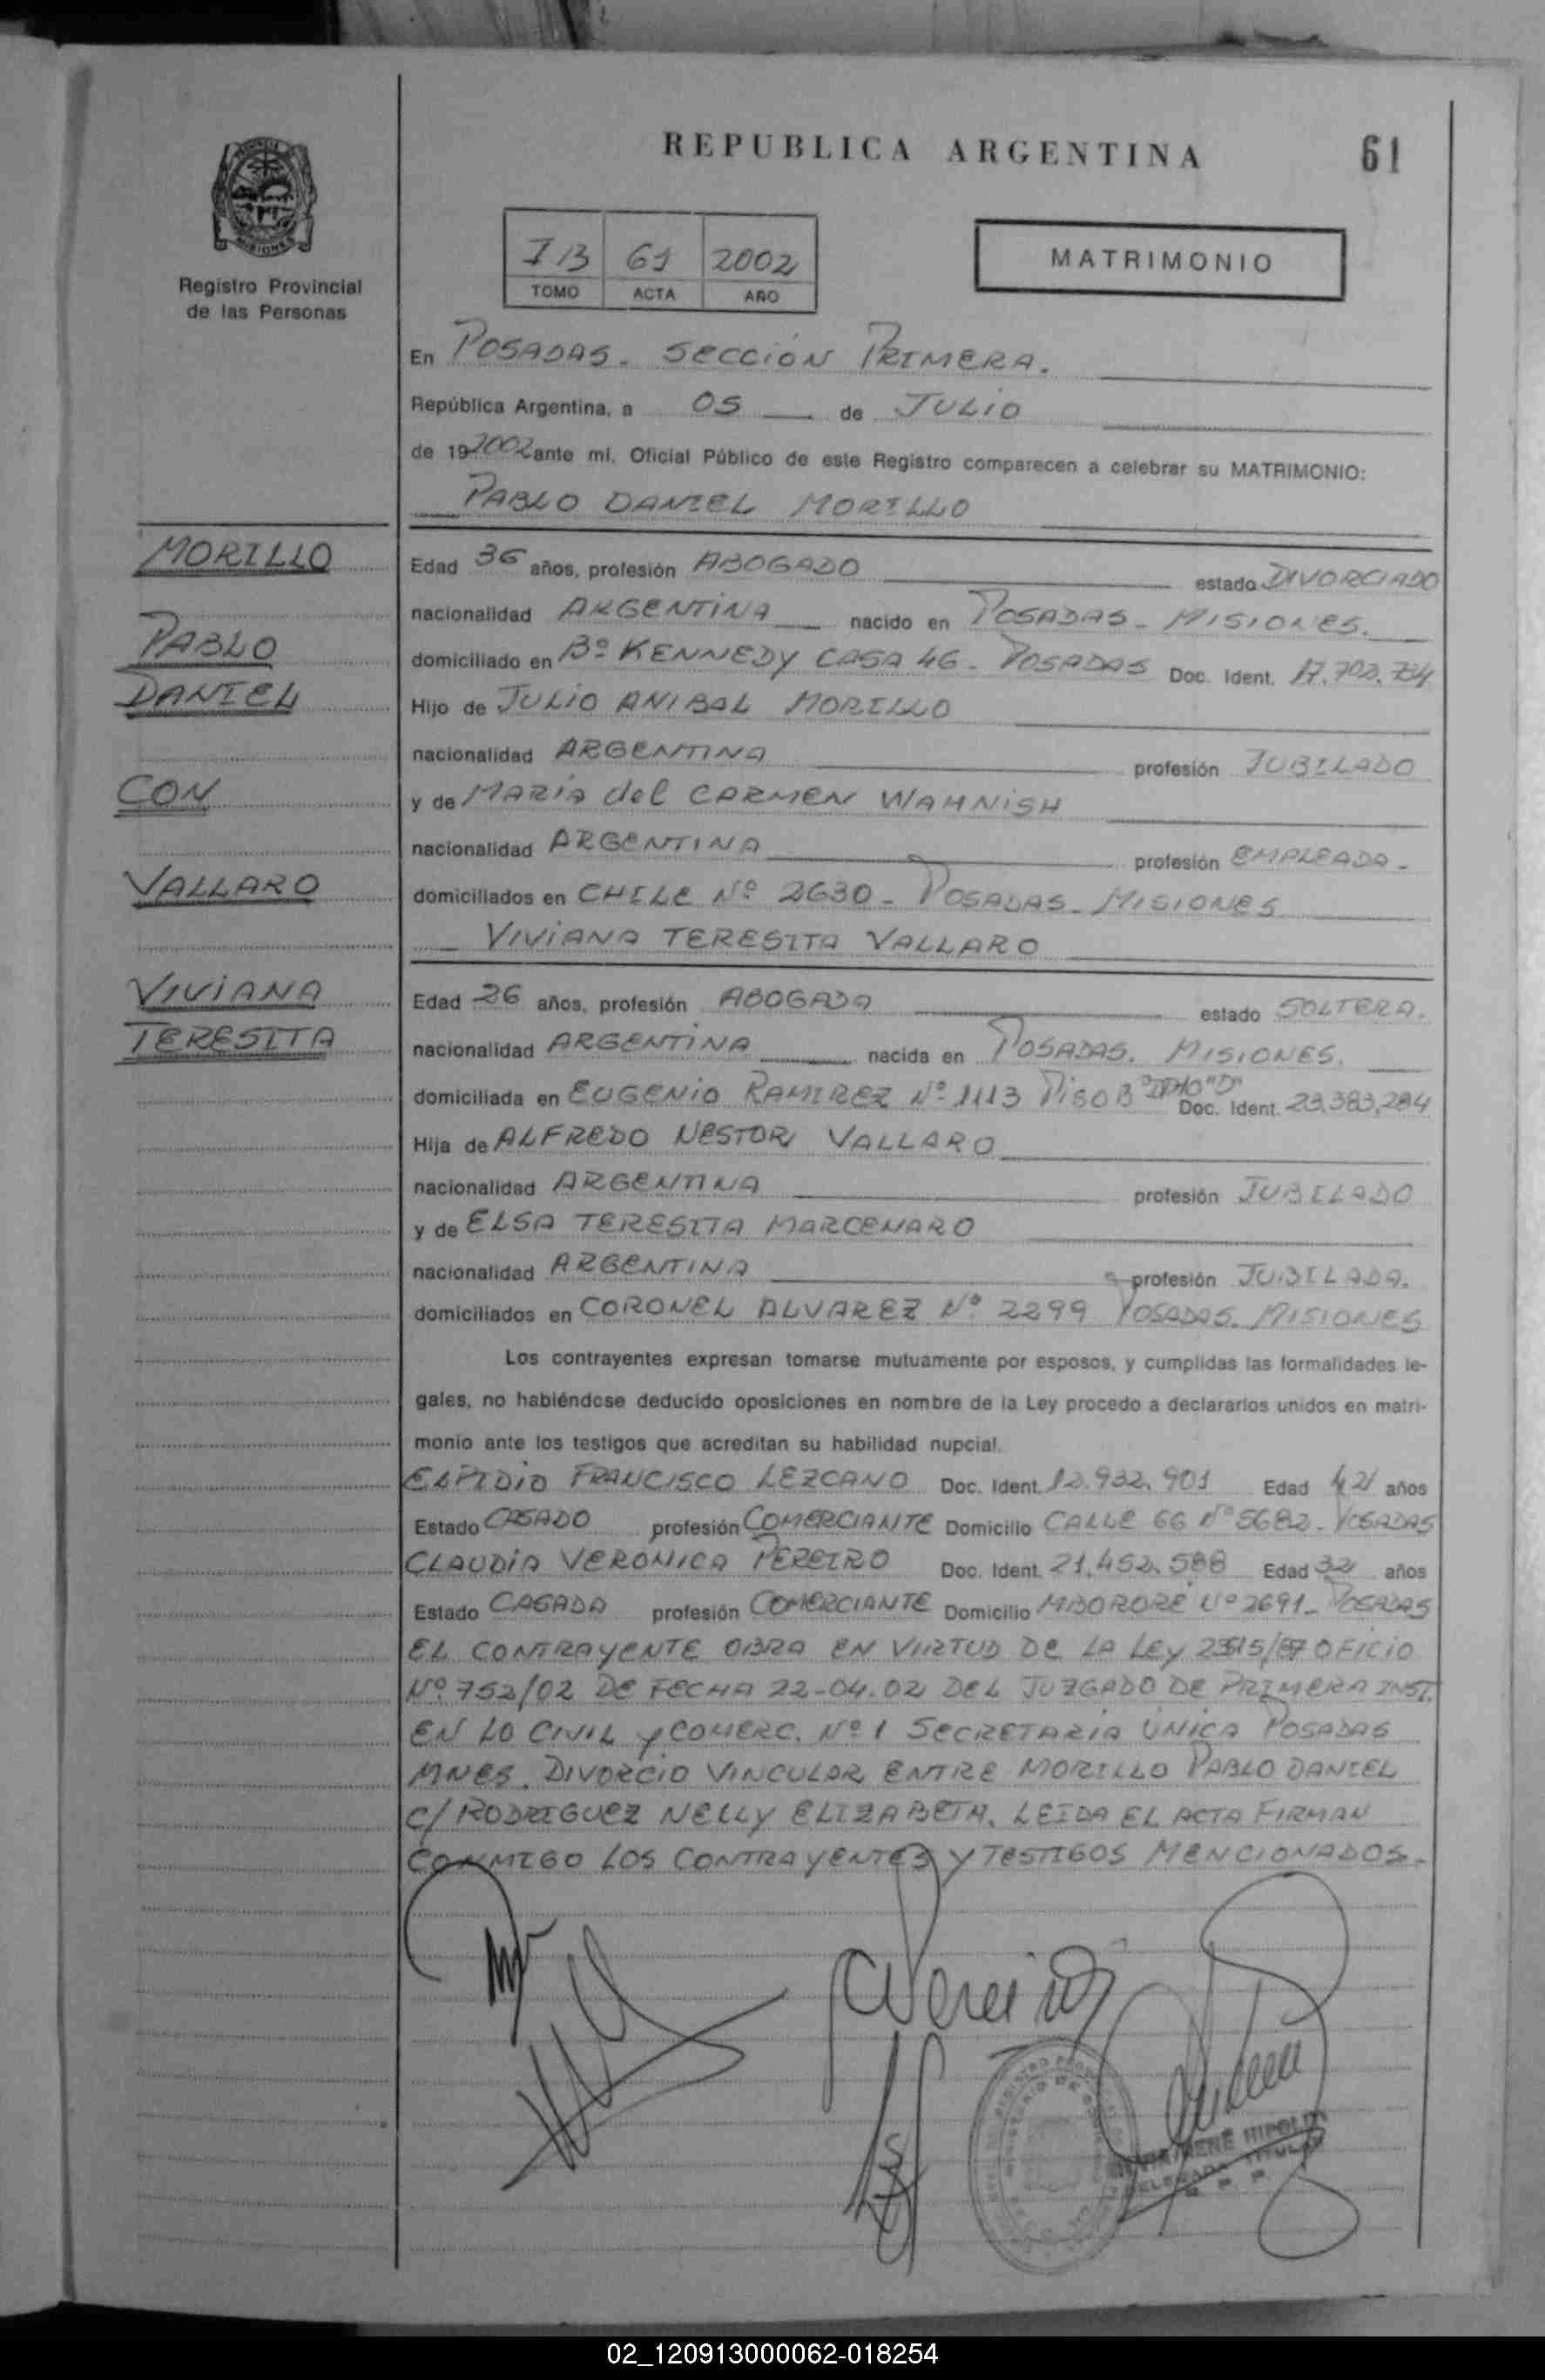 REPUBLICA ARGENTINA
61
MISIONES
Registro Provincial
de las Personas
1B 61 2002
TOMO ACTA AÑO
MATRIMONIO
En POSADAS - SECCIÓN PRIMERA.
República Argentina, a 05 de JULIO
de 19 2002 ante mí, Oficial Público de este Registro comparecen a celebrar su MATRIMONIO:
PABLO DANIEL MORILLO
MORILLO
PABLO
DANIEL
CON
VALLARO
VIVIANA
TERESITA
Edad 36 años, profesión ABOGADO estado DIVORCIADO
nacionalidad ARGENTINA nacido en POSADAS - MISIONES.
domiciliado en Bº KENNEDY CASA 46 - POSADAS Doc. Ident. 17.702.734
Hijo de JULIO ANIBAL MORILLO
nacionalidad ARGENTINA profesión JUBILADO
y de MARÍA del CARMEN WAHNISH
nacionalidad ARGENTINA profesión EMPLEADA -
domiciliados en CHILE Nº 2630 - POSADAS - MISIONES
VIVIANA TERESITA VALLARO
Edad 26 años, profesión ABOGADA estado SOLTERA.
nacionalidad ARGENTINA nacida en POSADAS. MISIONES.
domiciliada en EUGENIO RAMIREZ Nº 1113 PISO B "DPTO "D" Doc. Ident. 23.383.284
Hija de ALFREDO NESTOR VALLARO
nacionalidad ARGENTINA profesión JUBILADO
y de ELSA TERESITA MARCENARO
nacionalidad ARGENTINA profesión JUBILADA.
domiciliados en CORONEL ALVAREZ Nº 2299 POSADAS. MISIONES
Los contrayentes expresan tomarse mutuamente por esposos, y cumplidas las formalidades le-
gales, no habiéndose deducido oposiciones en nombre de la Ley procedo a declararlos unidos en matri-
monio ante los testigos que acreditan su habilidad nupcial.
ELPIDIO FRANCISCO LEZCANO Doc. Ident. 12.932.901 Edad 42 años
Estado CASADO profesión COMERCIANTE Domicilio CALLE 66 Nº 5682 - POSADAS
CLAUDIA VERONICA PEREIRO Doc. Ident. 21.452.588 Edad 32 años
Estado CASADA profesión COMERCIANTE Domicilio MBORORÉ Nº 2691 - POSADAS
EL CONTRAYENTE OBRA EN VIRTUD DE LA LEY 23515/87 OFICIO
Nº 752/02 DE FECHA 22-04.02 DEL JUZGADO DE PRIMERA INST.
EN LO CIVIL y COMERC. Nº 1 SECRETARIA ÚNICA POSADAS
MNES. DIVORCIO VINCULAR ENTRE MORILLO PABLO DANIEL
C/ RODRIGUEZ NELLY ELIZABETH. LEIDA EL ACTA FIRMAN
CONMIGO LOS CONTRAYENTES Y TESTIGOS MENCIONADOS -
IRENE HIPOLITO
DELEGADA TITULAR
R. P. P.
02_120913000062-018254